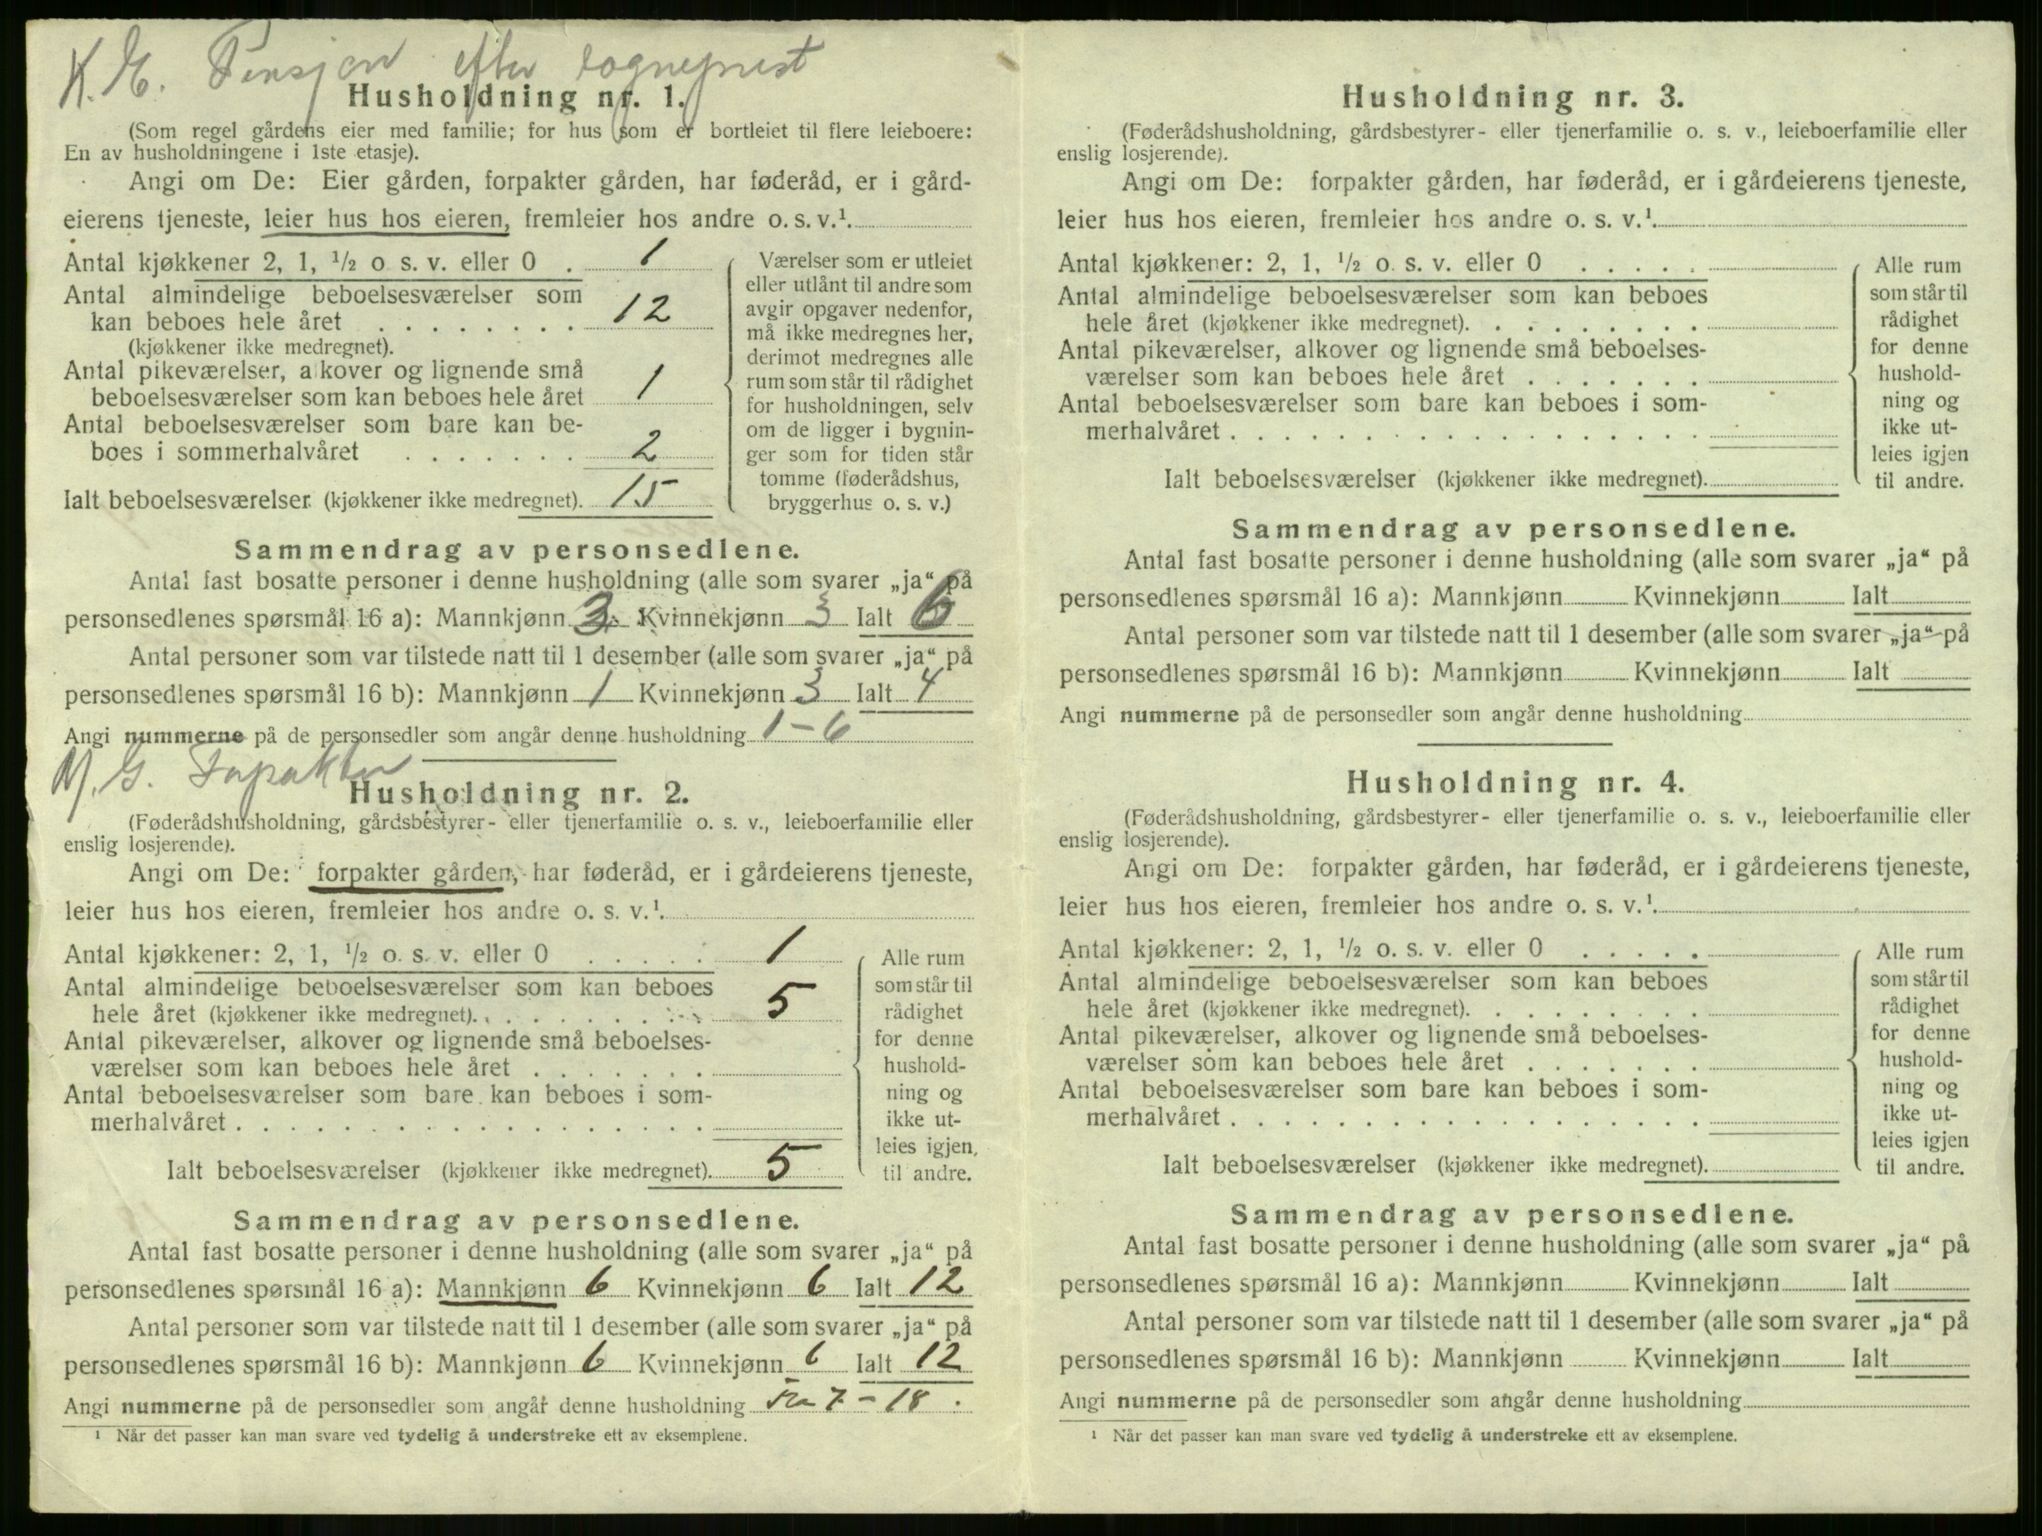 K. E. Pensjon efter sogneprest
Husholdning nr. 1.
(Som regel gårdens eier med familie; for hus som er bortleiet til flere leieboere:
En av husholdningene i 1ste etasje).
Angi om De: Eier gården, forpakter gården, har føderåd, er i gård-
eierens tjeneste, leier hus hos eieren, fremleier hos andre o. s. v.¹.
Antal kjøkkener 2, 1, ½ o s. v. eller 0 . 1
Antal almindelige beboelsesværelser som
kan beboes hele året . . . . . . . . 12
(kjøkkener ikke medregnet).
Antal pikeværelser, alkover og lignende små
beboelsesværelser som kan beboes hele året 1
Antal beboelsesværelser som bare kan be-
boes i sommerhalvåret . . . . . . . 2
Ialt beboelsesværelser (kjøkkener ikke medregnet). 15
Værelser som er utleiet
eller utlånt til andre som
avgir opgaver nedenfor,
må ikke medregnes her,
derimot medregnes alle
rum som står til rådighet
for husholdningen, selv
om de ligger i bygnin-
ger som for tiden står
tomme (føderådshus,
bryggerhus o. s. v.)
Sammendrag av personsedlene.
Antal fast bosatte personer i denne husholdning (alle som svarer „ja“ på
personsedlenes spørsmål 16 a): Mannkjønn 3 Kvinnekjønn 3 Ialt 6
Antal personer som var tilstede natt til 1 desember (alle som svarer „ja“ på
personsedlenes spørsmål 16 b): Mannkjønn 1 Kvinnekjønn 3 Ialt 4
Angi nummerne på de personsedler som angår denne husholdning 1-6
M. G. Forpakter
Husholdning nr. 2.
(Føderådshusholdning, gårdsbestyrer- eller tjenerfamilie o. s. v., leieboerfamilie eller
enslig losjerende).
Angi om De: forpakter gården, har føderåd, er i gårdeierens tjeneste,
leier hus hos eieren, fremleier hos andre o. s. v.¹.
Antal kjøkkener: 2, 1, ½ o. s. v. eller 0 . . . . . 1
Antal almindelige beboelsesværelser som kan beboes
hele året (kjøkkener ikke medregnet). . . . . . . . . 5
Antal pikeværelser, alkover og lignende små beboelses-
værelser som kan beboes hele året . . . . . . .
Antal beboelsesværelser som bare kan beboes i som-
merhalvåret . . . . . . . . . . . . . . . . . .
Ialt beboelsesværelser (kjøkkener ikke medregnet). 5
Alle rum
som står til
rådighet
for denne
hushold-
ning og
ikke ut-
leies igjen
til andre.
Sammendrag av personsedlene.
Antal fast bosatte personer i denne husholdning (alle som svarer „ja“ på
personsedlenes spørsmål 16 a): Mannkjønn 6 Kvinnekjønn 6 Ialt 12
Antal personer som var tilstede natt til 1 desember (alle som svarer „ja“ på
personsedlenes spørsmål 16 b): Mannkjønn 6 Kvinnekjønn 6 Ialt 12
Angi nummerne på de personsedler som angår denne husholdning 7 - 18.
¹ Når det passer kan man svare ved tydelig å understreke ett av eksemplene.
Husholdning nr. 3.
(Føderådshusholdning, gårdsbestyrer- eller tjenerfamilie o. s. v., leieboerfamilie eller
enslig losjerende).
Angi om De: forpakter gården, har føderåd, er i gårdeierens tjeneste,
leier hus hos eieren, fremleier hos andre o. s. v.¹.
Antal kjøkkener: 2, 1, ½ o. s. v. eller 0 . . . . .
Antal almindelige beboelsesværelser som kan beboes
hele året (kjøkkener ikke medregnet). . . . . . . . .
Antal pikeværelser, alkover og lignende små beboelses-
værelser som kan beboes hele året . . . . . . .
Antal beboelsesværelser som bare kan beboes i som-
merhalvåret . . . . . . . . . . . . . . . . . .
Ialt beboelsesværelser (kjøkkener ikke medregnet).
Alle rum
som står til
rådighet
for denne
hushold-
ning og
ikke ut-
leies igjen
til andre.
Sammendrag av personsedlene.
Antal fast bosatte personer i denne husholdning (alle som svarer „ja“ på
personsedlenes spørsmål 16 a): Mannkjønn Kvinnekjønn Ialt
Antal personer som var tilstede natt til 1 desember (alle som svarer „ja“ på
personsedlenes spørsmål 16 b): Mannkjønn Kvinnekjønn Ialt
Angi nummerne på de personsedler som angår denne husholdning
Husholdning nr. 4.
(Føderådshusholdning, gårdsbestyrer- eller tjenerfamilie o. s. v., leieboerfamilie eller
enslig losjerende).
Angi om De: forpakter gården, har føderåd, er i gårdeierens tjeneste,
leier hus hos eieren, fremleier hos andre o. s. v.¹.
Antal kjøkkener: 2, 1, ½ o. s. v. eller 0 . . . . .
Antal almindelige beboelsesværelser som kan beboes
hele året (kjøkkener ikke medregnet). . . . . . . . .
Antal pikeværelser, alkover og lignende små beboelses-
værelser som kan beboes hele året . . . . . . .
Antal beboelsesværelser som bare kan beboes i som-
merhalvåret . . . . . . . . . . . . . . . . . .
Ialt beboelsesværelser (kjøkkener ikke medregnet).
Alle rum
som står til
rådighet
for denne
hushold-
ning og
ikke ut-
leies igjen
til andre.
Sammendrag av personsedlene.
Antal fast bosatte personer i denne husholdning (alle som svarer „ja“ på
personsedlenes spørsmål 16 a): Mannkjønn Kvinnekjønn Ialt
Antal personer som var tilstede natt til 1 desember (alle som svarer „ja“ på
personsedlenes spørsmål 16 b): Mannkjønn Kvinnekjønn Ialt
Angi nummerne på de personsedler som angår denne husholdning
¹ Når det passer kan man svare ved tydelig å understreke ett av eksemplene.